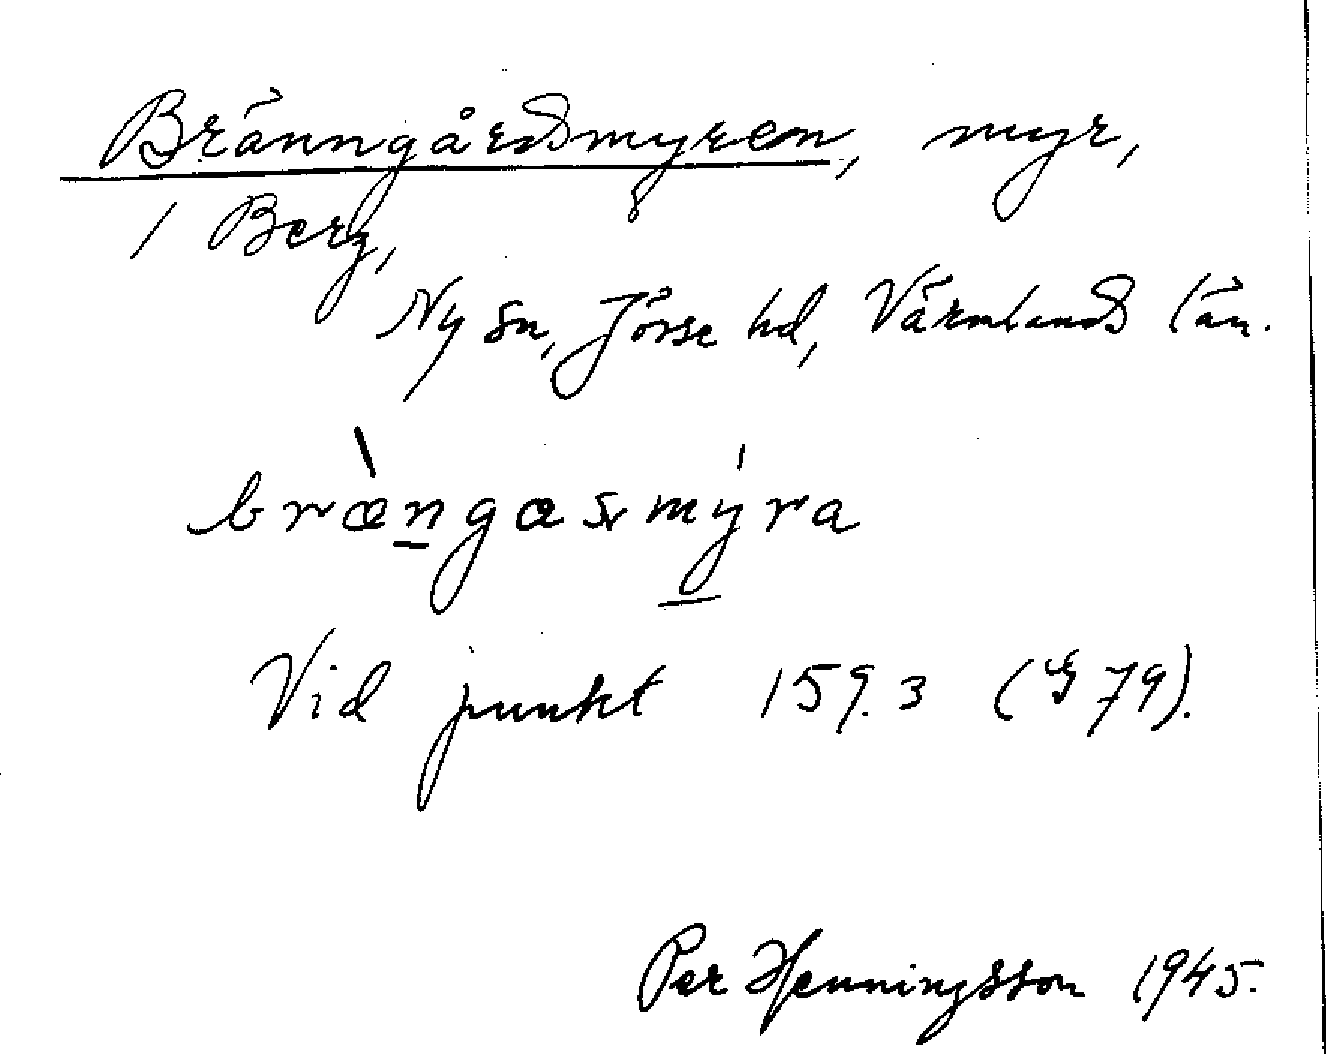 Bränngårdsmyren, myr,
1 Berg,
Ny sn, Jösse hd, Värmlands län.
bræ̀ngasmýra
Vid punkt 159.3 (G 79).
Per Henningsson 1945.